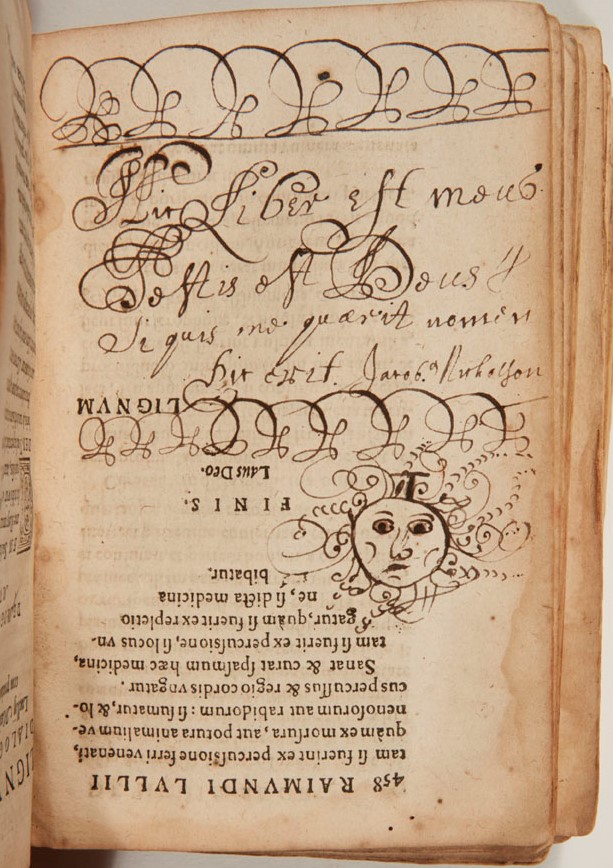 Hic Liber est meus
Testis est Deus
Si quis me quærit nomen
hic erit. Jacob. Nicholson
458 RAIMVNDI LVLLII
tam si fuerint ex percussione ferri venenati,
quàm ex morsura, aut potura animalium ve-
nenosorum aut rabidorum : si sumatur, & lo-
cus percussus & regio cordis vngatur.
Sanat & curat spasmum hæc medicina,
tam si fuerit ex percussione, si locus vn-
gatur, quàm si fuerit ex repletio
ne, si dicta medicina
bibatur.
FINIS.
Laus Deo.
LIGNVM